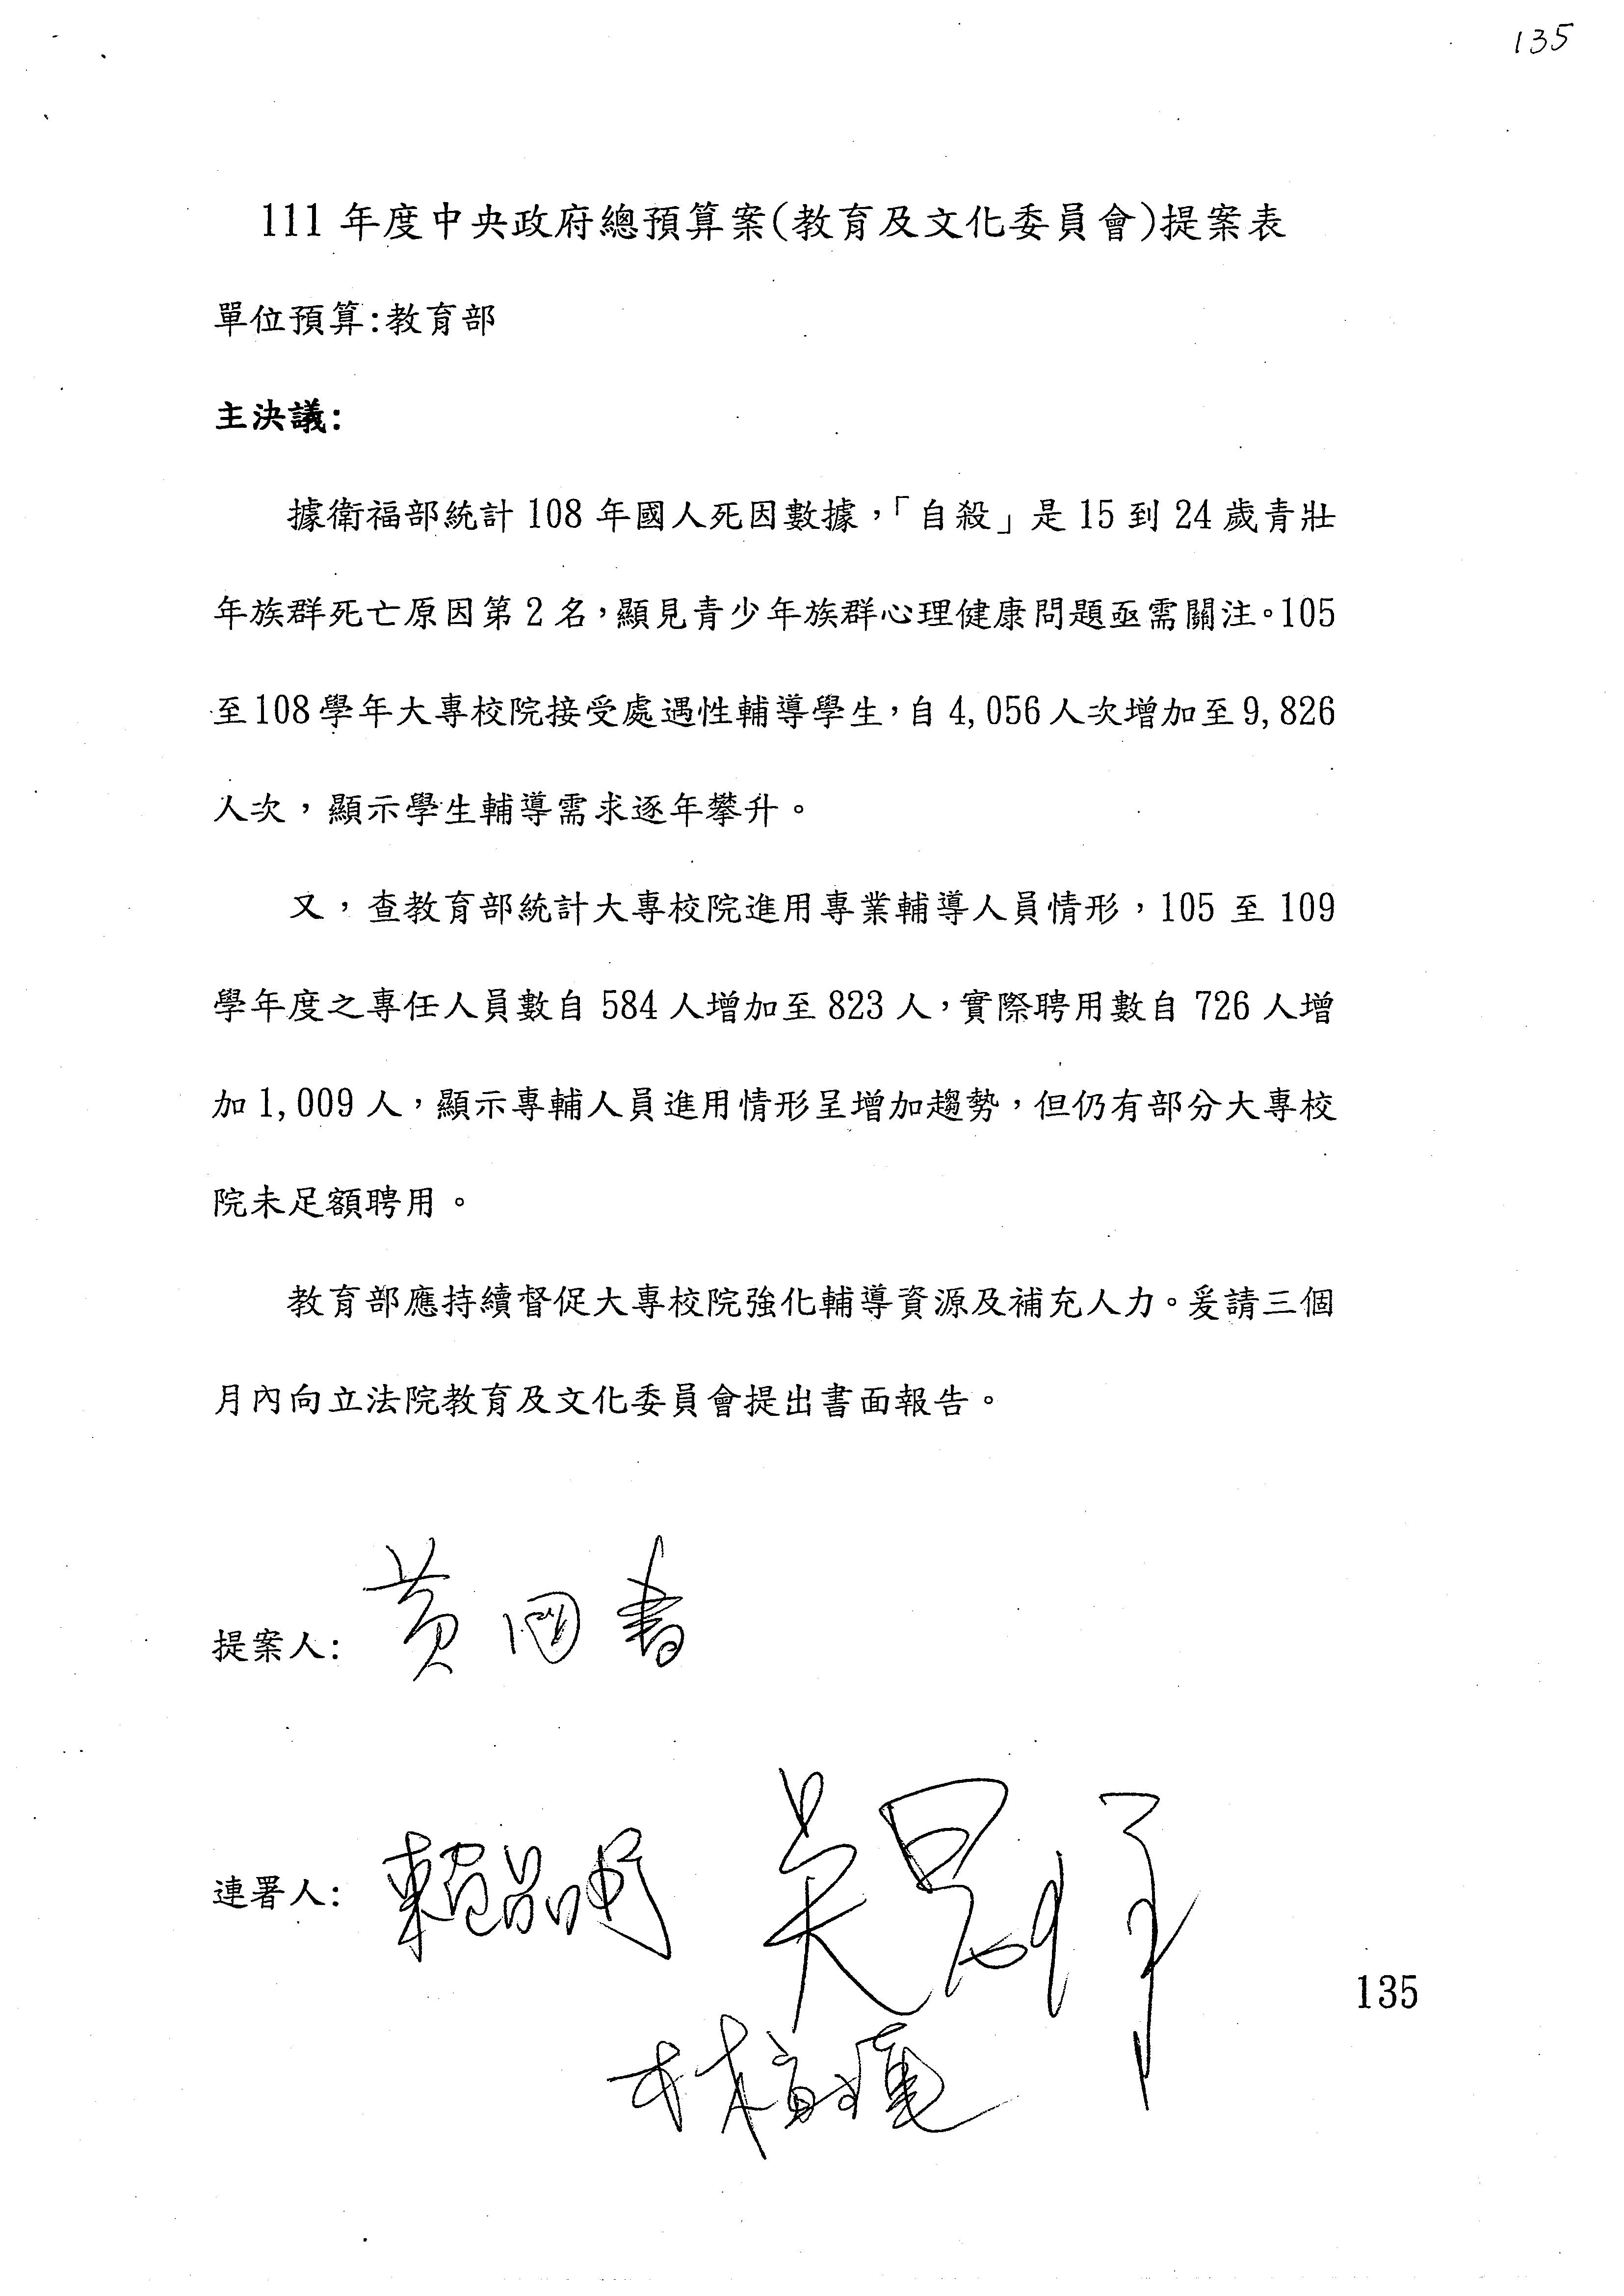 135
111 年度中央政府總預算案(教育及文化委員會)提案表
單位預算:教育部
主決議:
據衛福部統計 108 年國人死因數據,「自殺」是 15 到 24 歲青壯
年族群死亡原因第 2 名,顯見青少年族群心理健康問題亟需關注。105
至 108 學年大專校院接受處遇性輔導學生,自 4,056 人次增加至 9,826
人次,顯示學生輔導需求逐年攀升。
又,查教育部統計大專校院進用專業輔導人員情形,105 至 109
學年度之專任人員數自 584 人增加至 823 人,實際聘用數自 726 人增
加 1,009 人,顯示專輔人員進用情形呈增加趨勢,但仍有部分大專校
院未足額聘用。
教育部應持續督促大專校院強化輔導資源及補充人力。爰請三個
月內向立法院教育及文化委員會提出書面報告。
提案人: 黃國書
連署人: 賴品妤 吳思瑤
135
林宜瑾